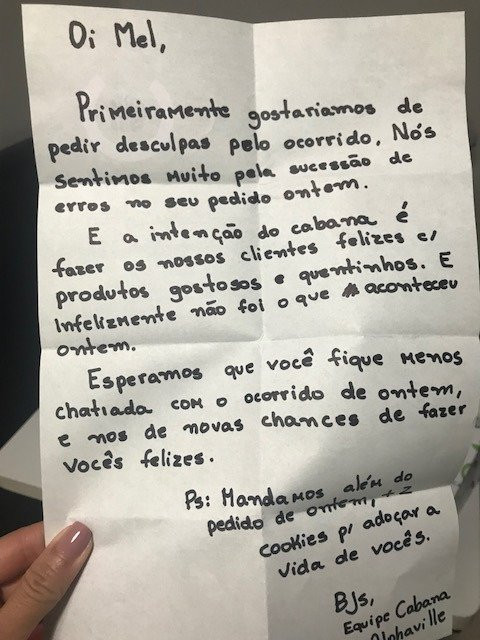 Oi Mel,
Primeiramente gostariamos de
pedir desculpas pelo ocorrido. Nós
sentimos muito pela sucessão de
erros no seu pedido ontem.
E a intenção do cabana é
fazer os nossos clientes felizes c/
produtos gostosos e quentinhos. E
infelizmente não foi o que aconteceu
ontem.
Esperamos que você fique menos
chatiada com o ocorrido de ontem,
e nos de novas chances de fazer
vocês felizes.
Ps: Mandamos além do
pedido de ontem, + 2
cookies p/ adoçar a
vida de vocês.
BJs,
Equipe Cabana
Alphaville